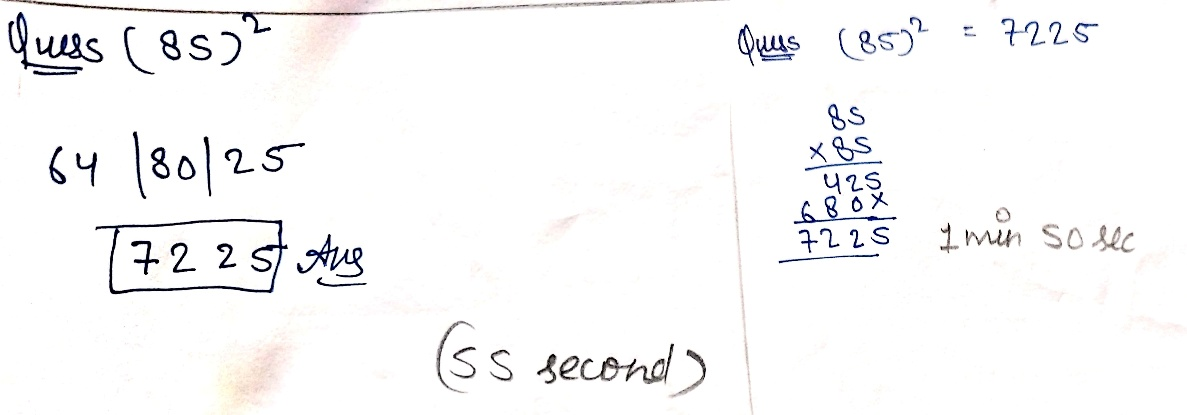 Ques (85)²
64 |80| 25
7225 Ans
(55 second)
Ques (85)² = 7225
85
×85
425
680×
7225
1 min 50 sec